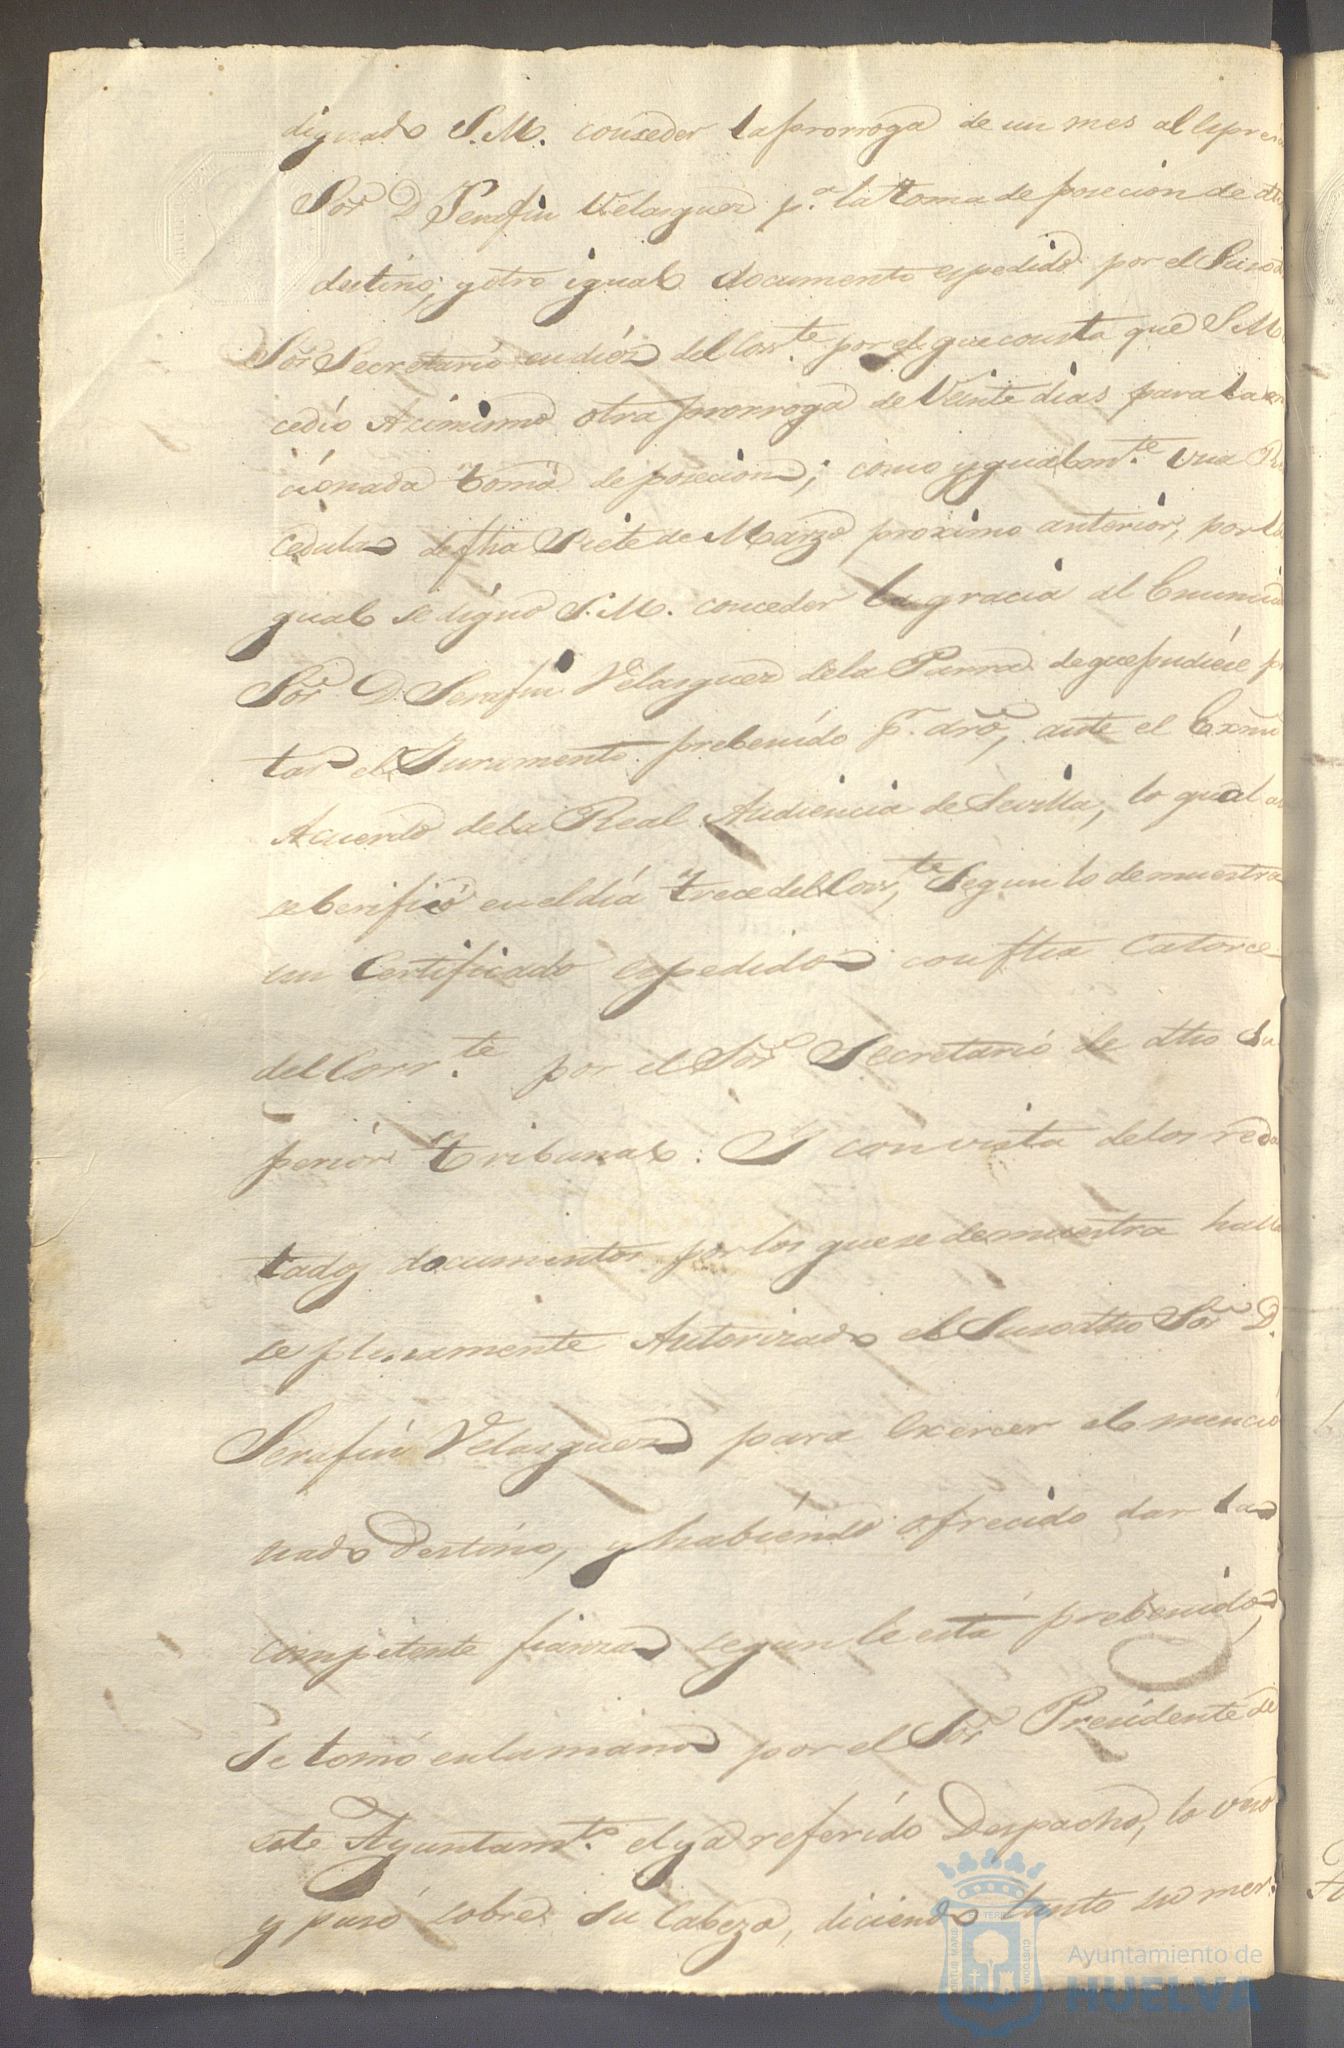 dignado S.M. conceder la prorroga de un mes al espre
Sor. D Serafin Velasquez p.a la toma de posecion de dho
destino, y otro igual documento espedido por el Suso
Sor Secretario en dies del Corr.te por el que consta que S M
cedio Acimismo otra prorroga de Veinte dias para la en
cionada toma de posecion; como ygualm.te una R
cedula de fha Siete de Marzo proximo anterior, por la
qual se dignó S.M. conceder la gracia al Enuncia
Sor. D. Serafin Velasquez de la Parra de que pudiese p
tar el Juramento prebenido p.r dro, ante el Exmo
Acuerdo de la Real Audiencia de Sevilla, lo qual
se berificó en el día trece del Corr.te Segun lo demuestra
un Certificado espedido con fha Catorce
del Corr.te por el Sor. Secretario de dho Su
perior tribunal. Y con vista de los rela
tados documentos por los que se demuestra halla
se plenamente Autorizado el Susodho Sor D.
Serafin Velasquez para Exercer el mencio
nado Destino, y habiendo ofrecido dar la
competente fianza segun le está prebenido,
Se tomó en la mano por el Sor Presidente de
este Ayuntam.to el ya referido Despacho, lo vesó
y puso sobre su Cabeza, diciendo tanto su mer.
Ayuntamiento de
HUELVA